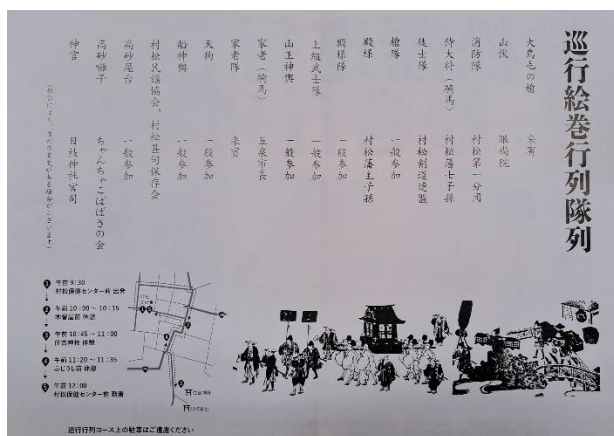 巡行絵巻行列隊列
大鳥毛の槍 来賓
山伏
消防隊 村松第一分団
侍大将(騎馬) 村松藩士子孫
徒士隊 村松剣道連盟
槍隊 一般参加
殿様 村松藩主子孫
殿様隊 一般参加
上級武士隊 一般参加
山王神輿 一般参加
家老(騎馬) 五泉市長
家老隊 来賓
天狗 一般参加
船神輿 一般参加
村松民謡協会、村松甚句保存会
高砂屋台 一般参加
高砂囃子 ちゃんちゃこばばさの会
神官 日枝神社宮司
(都合により、隊列の変更がある場合がございます)
❶ 午前9:30
村松保健センター前 出発
❷ 午前10:00~10:15
木曽屋前 休憩
❸ 午前10:45~11:00
住吉神社 休憩
❹ 午前11:20~11:35
ふじうし前 休憩
❺ 午前12:00
村松保健センター前 到着
住吉神社
日枝神社
巡行行列コース上の駐車はご遠慮ください